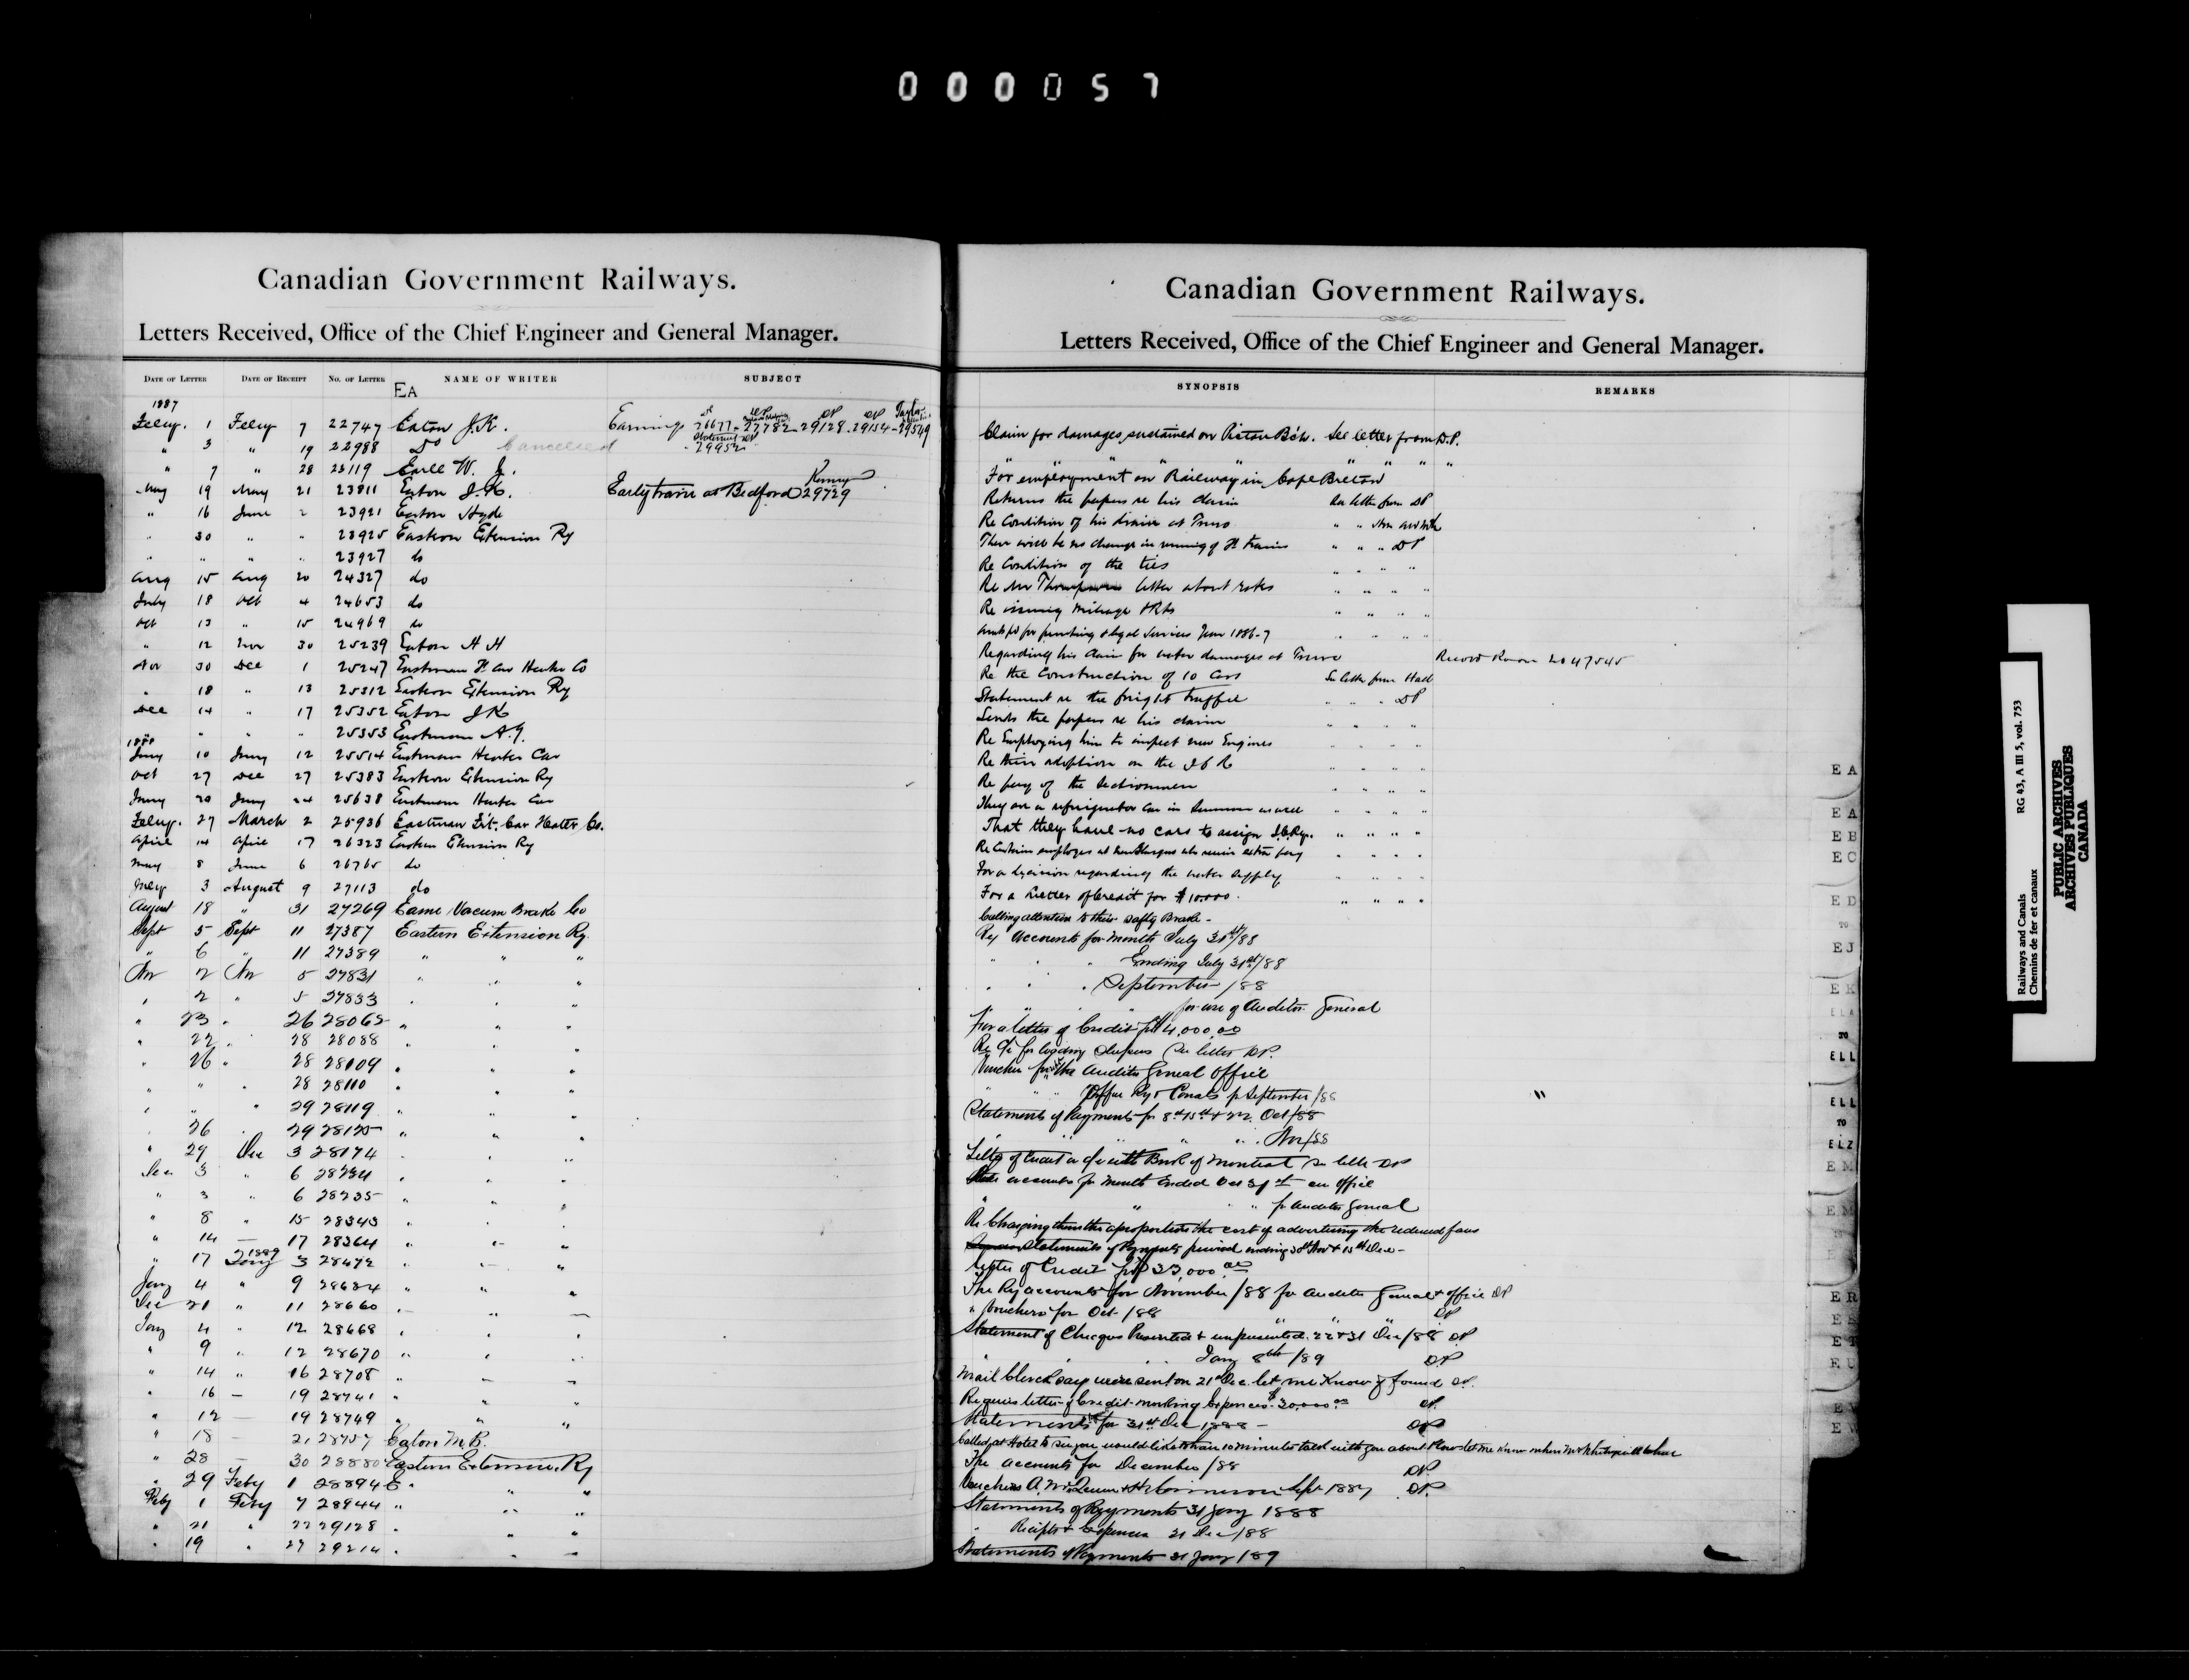 000057
Canadian Government Railways.
Letters Received, Office of the Chief Engineer and General Manager.
DATE OF LETTER DATE OF RECEIPT NO. OF LETTER NAME OF WRITER SUBJECT
EA
1887
Feby. 1 Feby 7 22747 Eaton J.K. Earnings 26677 - 27782 - 29128 - 29154 - 29549
" 3 " 19 22988 Do Cancelled 29952
" 7 " 28 23119 Earle W. J.
May 19 May 21 23811 Eaton J.K. Early train at Bedford 29729
" 16 June 2 23921 Eaton Hyde
" 30 " " 23925 Eastern Extension Ry
" " " " 23927 do
Aug 15 Aug 20 24327 do
July 18 Oct 4 24653 do
Oct 13 " 15 24969 do
" 12 Nov 30 25239 Eaton H H
Nov 30 Dec 1 25247 Eastman H Car Heater Co
" 18 " 13 25312 Eastern Extension Ry
Dec 14 " 17 25352 Eaton J K
" " " 25353 Eastman A.G.
1888
Jany 10 Jany 12 25514 Eastman Heater Car
Oct 27 Dec 27 25383 Eastern Extension Ry
Jany 20 Jany 24 25638 Eastman Heater Car
Feby. 27 March 2 25936 Eastman Frt. Car Heater Co.
April 14 April 17 26323 Eastern Extension Ry
May 8 June 6 26765 do
3 August 9 27113 do
August 18 " 31 27269 Eame Vacum Brake Co
Sept 5 Sept 11 27387 Eastern Extension Ry.
" 6 " 11 27389 " " "
Nov 2 Nov 5 27831 " " "
" 2 " 5 27833 " " "
" 23 " 26 28065 " " "
" 22 " 28 28088 " " "
" 26 " 28 28109 " " "
" " " 28 28110 " " "
" " " 29 28119 " " "
" 26 " 29 28125 " " "
" 29 Dec 3 28174 " " "
Dec 3 " 6 28234 " " "
" 3 " 6 28235 " " "
" 8 " 15 28343 " " "
" 14 — 17 28364 " " "
1889
" 17 Jany 3 28472 " " "
Jany 4 " 9 28624 " " "
Dec 21 " 11 28660 " " "
Jany 4 " 12 28668 " " "
" 9 " 12 28670 " " "
" 14 " 16 28708 " " "
" 16 — 19 28741 " " "
" 12 — 19 28749 " " "
" 18 — 21 28757 Eaton M.B.
" 28 — 30 28880 Eastern Extension Ry
" 29 Feby 1 28894 E " "
Feby 1 Feby 7 28944 " " "
" 21 " 22 29128 " " "
" 19 " 27 29214 " " "
Canadian Government Railways.
Letters Received, Office of the Chief Engineer and General Manager.
SYNOPSIS REMARKS
Claim for damages sustained on Pictou Bch. See letter from D.P.
" " " "
For employment on Railway in Cape Breton
Returns the papers re his claim See letter from DP
Re Condition of his drain at Truro " "
There will be no change in running of trains " " " DP
Re Condition of the ties " " " "
Re Mr Thompsons letter about rates " " " "
Re issuing mileage tkts " " " "
for printing & legal services June 1886-7 " " " "
Regarding his claim for water damages at Truro Record Room 47545
Re the Construction of 10 Cars See letter from Hall
Statement re the freight traffic " " " DP
Sends the papers re his claim " " " "
Re Employing him to inspect new Engines " " " "
Re their adoption on the I C R " " " "
Re pay of the Sectionmen " " " "
They are a refrigerator car in Summer as well " " " "
That they have no cars to assign I.C.Ry. " " " "
Re Certain employes at New Glasgow who receive extra pay " " " "
For a decision regarding the water supply " " " "
For a Letter of Credit for $10,000. " " " "
Calling attention to their Safty Brake -
Ry Accounts for month July 31st/88
" " " Ending July 31st/88
" " " September /88
" " " for use of Auditor General
For a letter of Credit for $4,000.00
Re for loading sleepers See letter DP.
Voucher for the Auditor General Office
" " Office Ry & Canals for September/88
Statements of Payments for 8th 15th & 22. Oct/88
" " " " Nov/88
Letter of Credit a/c with Bank of Montreal See letter DP
accounts for month Ended Oct 31st - our office
" " " for Auditor General
Re Charging them the proportion the cost of advertising the reduced fares
Statements of Payments period ending 30th Nov & 15th Dec -
Letter of Credit for $33,000.00
The Ry accounts for November /88 for Auditor General & office DP
" Vouchers for Oct /88 DP
Statement of Cheques Presented & unpresented. 22 & 31 Dec/88 DP
" " " Jany 8th /89 DP
Mail Clerk says were sent on 21st Dec. let me Know if found DP.
Requires letter of Credit - working Expenses - $30,000.00 DP.
Statements for 31st Dec 1888 - DP
Called at Hotel to see you would like to have 10 minutes talk with you about
The accounts for December /88 DP.
Vouchers Sept 1887 DP.
Statements of Payments 31 Jany 1888
" Receipts & Expenses 31 Dec/88
Statements of Payments 31 Jany /89
E A
E A
E B
E C
E D
TO
E J
E K
E L A
TO
E L L
E L L
TO
E L Z
E M
E M
E R
E S
E T
E U
E V
E W
Railways and Canals RG 43, A III 5, vol. 753
Chemins de fer et canaux
PUBLIC ARCHIVES
ARCHIVES PUBLIQUES
CANADA